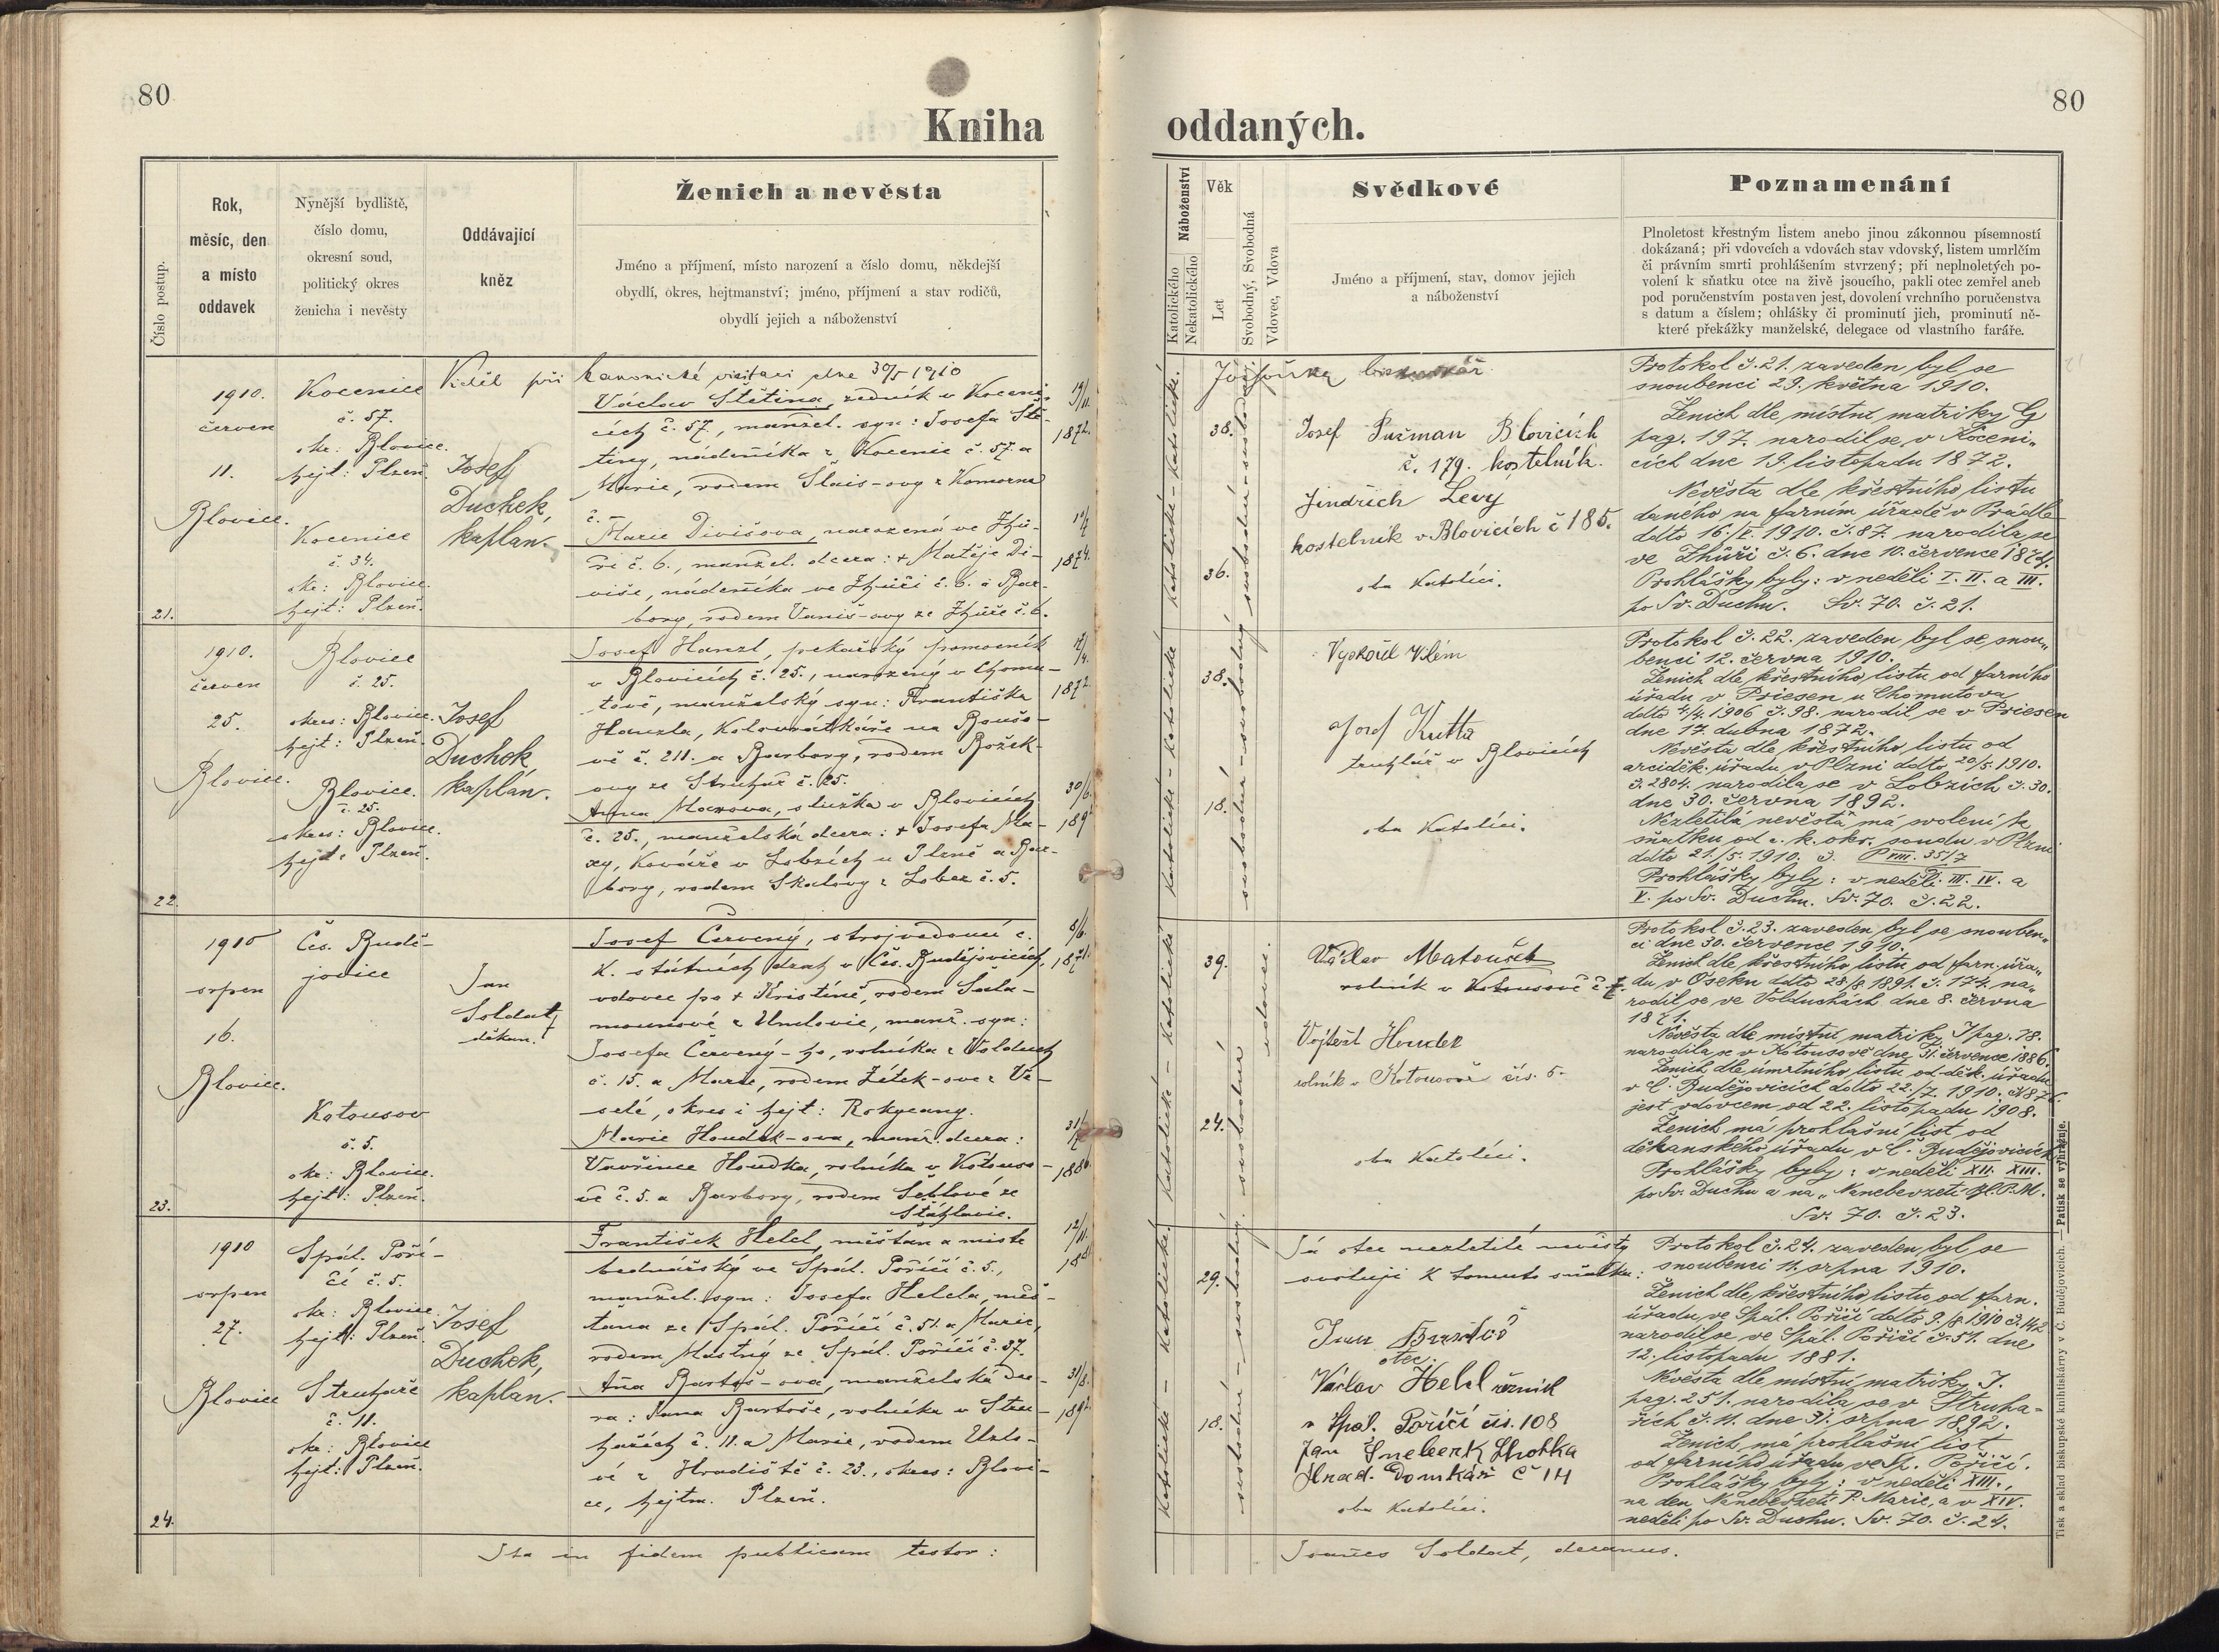 80
Kniha
Číslo postup.
Rok,
měsíc, den
a místo
oddavek
Nynější bydliště,
číslo domu,
okresní soud,
politický okres
ženicha i nevěsty
Oddávající
kněz
Ženich a nevěsta
Jméno a příjmení, místo narození a číslo domu, někdejší
obydlí, okres, hejtmanství; jméno, příjmení a stav rodičů,
obydlí jejich a náboženství
Viděl při kanonické visitaci dne 30/5 1910
21.
1910.
červen
11.
Blovice.
Kocenice
č. 57.
okr: Blovice.
hejt: Plzeň.
Kocenice
č. 34.
okr: Blovice.
hejt: Plzeň.
Josef
Duchek,
kaplan.
Václav Štětina, zedník v Koceni-
cích č. 57., manžel. syn: Josefa Ště-
tiny, nádeníka z Kocenic č. 57. a
Marie, rodem Šlais-ovy z Komorna
č. —
Marie Divišova, narozená ve Zhů-
ři č. 6., manžel. dcera: + Matěje Di-
více, nádeníka ve Zhůři č. 6. a Bar-
bory, rodem Vaniš-ovy ze Zhůře č. 6.
19/11.
1872.
10/7
1874.
22.
1910.
červen
25.
Blovice.
Blovice
č. 25.
okres: Blovice.
hejt: Plzeň.
Blovice.
č. 25.
okres: Blovice.
hejt: Plzeň.
Josef
Duchek
kaplán.
Josef Hanzl, pekařský pomocník
v Blovicích č. 25., narozený v Chomu-
tově, manželský syn: Františka
Hanzla, Kolovrátkáře na Boušo-
vě č. 211. a Barbory, rodem Božek-
ovy ze Struhař č. 25.
Anna Maxova, služka v Blovicích
č. 25., manželská dcera: + Josefa Ma-
xy, Kováře v Lobzích u Plzně a Bar-
bory, rodem Skalovy z Lobez č. 5.
17/4.
1872.
30/6.
189
23.
1910
srpen
16.
Blovice.
Čes. Budě-
jovice
Kotousov
č. 5.
okr: Blovice.
hejt: Plzeň.
Jan
Soldát,
děkan.
Josef Červený, strojvedoucí c.
K. státních drah v Čes. Budějovicích,
vdovec po + Kristině, rodem Sala-
mounové z Undovic, manž. syn:
Josefa Červený-ho, rolníka z Volduch
č. 15. a Marie, rodem Žítek-ove z Ve-
selé, okres i hejt: Rokycany.
Marie Houdek-ova, manž. dcera:
Vavřince Houdka, rolníka v Kotouso-
vě č. 5. a Barbory, rodem Šeblové ze
Stáhlavic.
8/6.
1871.
31/7
1886.
24.
1910
srpen
27.
Blovice
Spál. Poří-
čí č. 5.
okr: Blovice.
hejt: Plzeň.
Struhaře
č. 11.
okr: Blovice
hejt: Plzeň.
Josef
Duchek,
kaplan.
František Heldl, měšťan a mistr
bednářský ve Spál. Poříčí č. 5.,
manžel. syn: Josefa Heldla, měš-
ťana ze Spál. Poříčí č. 51. a Marie,
rodem Mastný ze Spál. Poříčí č. 37.
Anna Bartoš-ova, manželská dce-
ra: Jana Bartoše, rolníka v Stru-
hařích č. 11. a Marie, rodem Uxto-
vé z Hradiště č. 23., okres: Blovi-
ce, hejtm. Plzeň.
12/11.
1881
31/8.
1892.
Ita in fidem publicam testor:
80
oddaných.
Náboženství
Katolického
Nekatolického
Věk
Let
Svobodný, Svobodná
Vdovec, Vdova
Svědkové
Jméno a příjmení, stav, domov jejich
a náboženství
Poznamenání
Plnoletost křestným listem anebo jinou zákonnou písemností
dokázaná; při vdovcích a vdovách stav vdovský, listem umrlčím
či právním smrti prohlášením stvrzený; při neplnoletých po-
volení k sňatku otce na živě jsoucího, pakli otec zemřel aneb
pod poručenstvím postaven jest, dovolení vrchního poručenstva
s datum a číslem; ohlášky či prominutí jich, prominutí ně-
které překážky manželské, delegace od vlastního faráře.
katolické - katolické.
38.
36.
svobodná - svobodný
Josef Pužman Blovicích
č. 179. kostelník.
Jindřich Levý
kostelník v Blovicích č 185.
oba Katolíci.
Protokol č. 21. zaveden byl se
snoubenci 29. května 1910.
Ženich dle místní matriky G
pag. 197. narodil se v Koceni-
cích dne 19. listopadu 1872.
Nevěsta dle křestního listu
daného na farním úřadě v Prádle
ddto 16./V. 1910. č. 87. narodila se
ve Zhůři č. 6. dne 10. července 1874.
Prohlášky byly: v neděli I. II. a III.
po Sv. Duchu. Sv. 70. č. 21.
Katolické - Katolické
38.
18.
svobodná - svobodný
Vyskočil Vilém
Josef Kutta
truhlář v Blovicích
oba Katolíci.
Protokol č. 22. zaveden byl se snou-
benci 12. června 1910.
Ženich dle křestního listu od farního
úřadu v Priesen u Chomutova
ddto 4/4. 1906 č. 98. narodil se v Priesen
dne 17. dubna 1872.
Nevěsta dle křestního listu od
arciděk. úřadu v Plzni ddto 20/5. 1910.
č. 2804. narodila se v Lobzích č. 30.
dne 30. června 1892.
Nezletilá nevěsta má svolení ke
sňatku od c. k. okr. soudu v Plzni
ddto 21./5. 1910. č. P VIII. 351/7
Prohlášky byly: v neděli III. IV. a
V. po Sv. Duchu. Sv. 70. č. 22.
Katolické - Katolické
39.
24.
vdovec.
svobodná
Václav Matoušek
rolník v Kotousově č 7.
Vojtěch Houdek
rolník v Kotousově čís. 5.
oba Katolíci.
Protokol č. 23. zaveden byl se snouben-
ci dne 30. července 1910.
Ženich dle křestního listu od farn. úřa-
du v Oseku ddto 28/8. 1891. č. 174. na-
rodil se ve Volduchách dne 8. června
1871.
Nevěsta dle místní matriky I pag. 78.
narodila se v Kotousově dne 31. července 1886.
Ženich dle úmrtního listu od děk. úřadu
v Č. Budějovicích ddto 22./7. 1910. č. 876.
jest vdovcem od 22. listopadu 1908.
Ženich má prohlašní list od
děkanského úřadu v Č. Budějovicích
Prohlášky byly: v neděli XII. XIII.
po Sv. Duchu a na „Nanebevzetí Bl. P. M.
Sv. 70. č. 23.
Katolické - Katolické.
29.
18.
svobodná - svobodný.
Já otec nezletilé nevěsty
svoluji k tomuto sňatku:
Jan Bartoš
otec.
Václav Heldl řezník
v Spál. Poříčí čís. 108
Hrad. Domkář č 14
oba Katolíci.
Protokol č. 24. zaveden byl se
snoubenci 11. srpna 1910.
Ženich dle křestního listu od farn.
úřadu ve Spál. Poříčí ddto 9./8 1910 č. 142
narodil se ve Spál. Poříčí č. 51. dne
12. listopadu 1881.
Nevěsta dle místní matriky I.
pag. 251. narodila se v Struha-
řích č. 11. dne 31. srpna 1892.
Ženich má prohlašní list
od farního úřadu ve Sp. Poříčí.
Prohlášky byly: v neděli XIII.,
na den Nanebevzetí P. Marie, a v XIV.
neděli po Sv. Duchu. Sv. 70. č. 24.
Joannes Soldát, decanus.
Tisk a sklad biskupské knihtiskárny v Č. Budějovicích. — Patisk se vyhražuje.